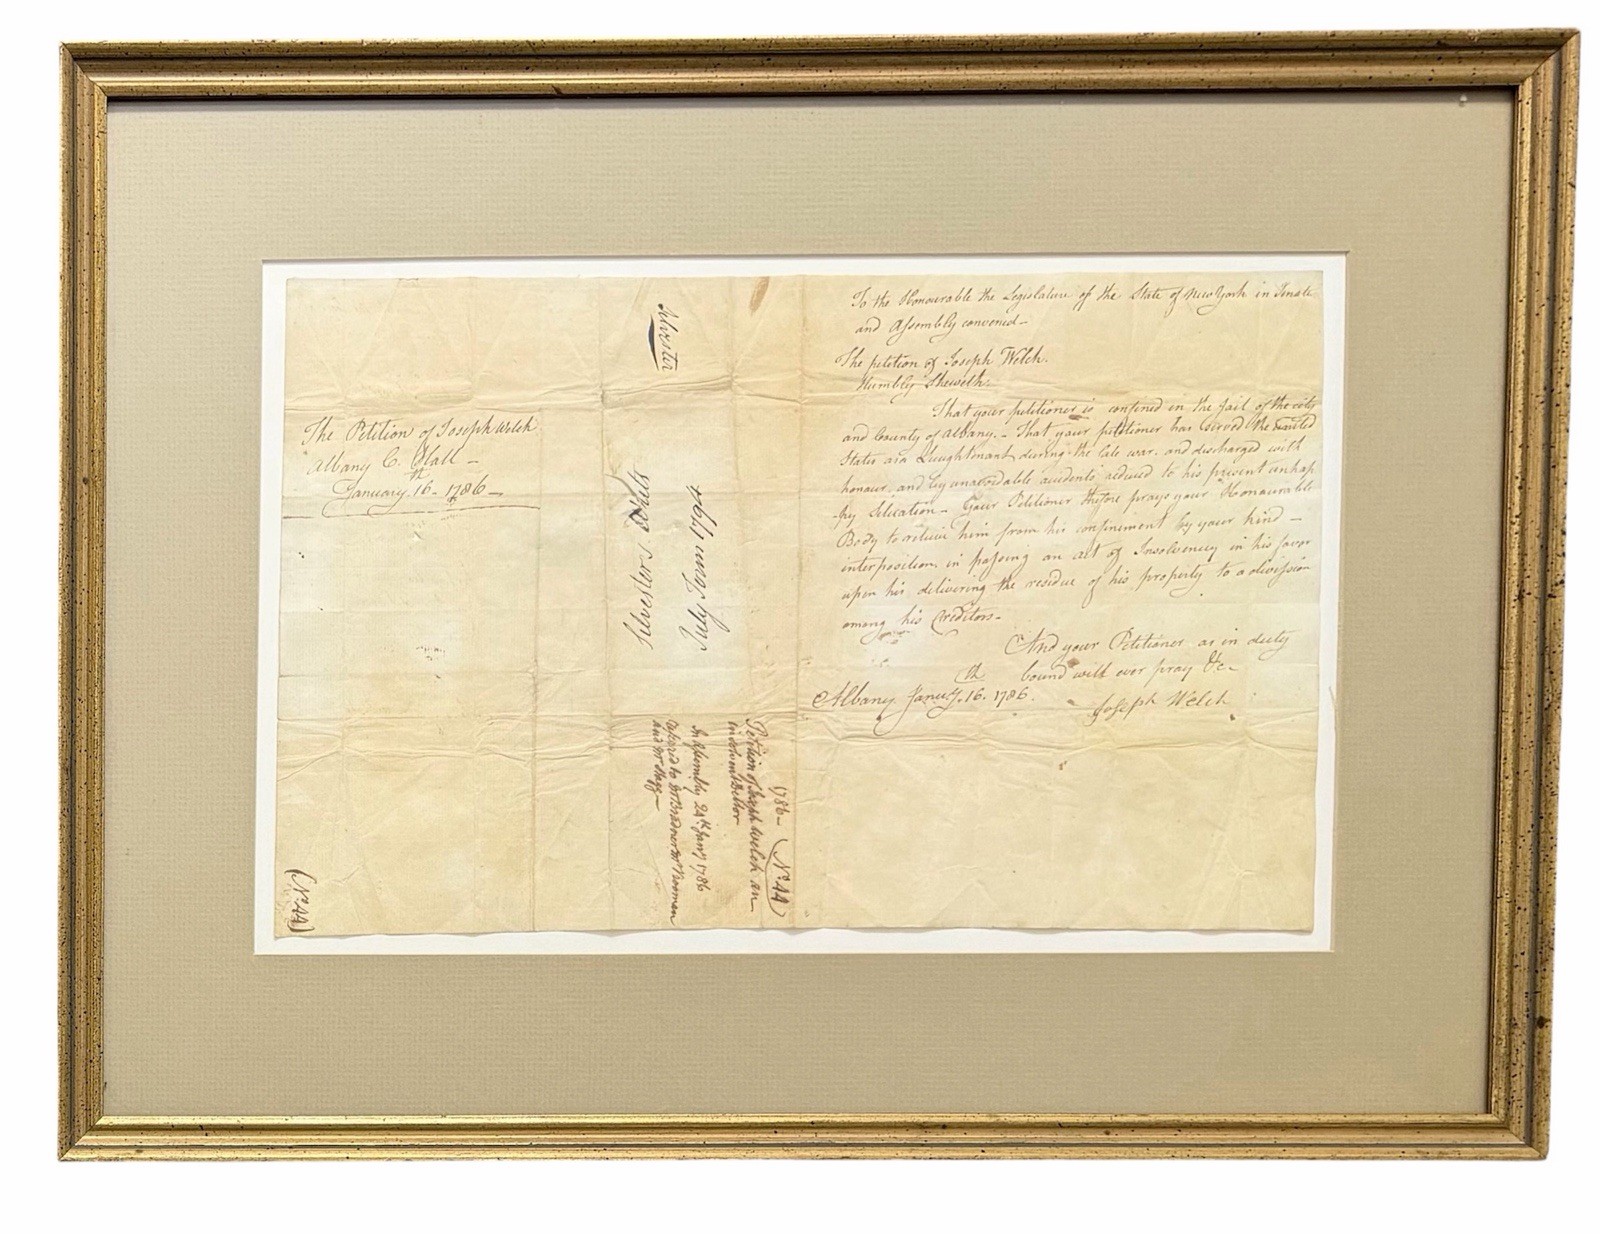 The Petition of Joseph Welch
Albany C. Hall -
January 16th - 1786 -
(No. 44)
silvester
Silvesters
July Term 1794
1786 - (No. 44)
Petition of Joseph Welch an
insolvent Debtor
In Assembly 24th Jany 1786
referd to Mr
and Mr
To the Honourable the Legislature of the State of New York in Senate
and Assembly convened -
The petition of Joseph Welch.
Humbly Sheweth.
That your petitioner is confined in the Jail of the city
and County of Albany. - That your petitioner has served the United
States as a Lieughtenant during the late war. and discharged with
honour, and by unavoidable accidents reduced to his present unhap
py Sitication - Your Petitioner thefore prays your Honourable
Body to relieve him from his confinement by your kind -
interposition, in passing an act of Insolvency in his favor
upon his delivering the residue of his property to a division
among his Creditors -
And your Petitioner as in duty
bound will ever pray &c -
Albany Januy. 16th. 1786. Joseph Welch